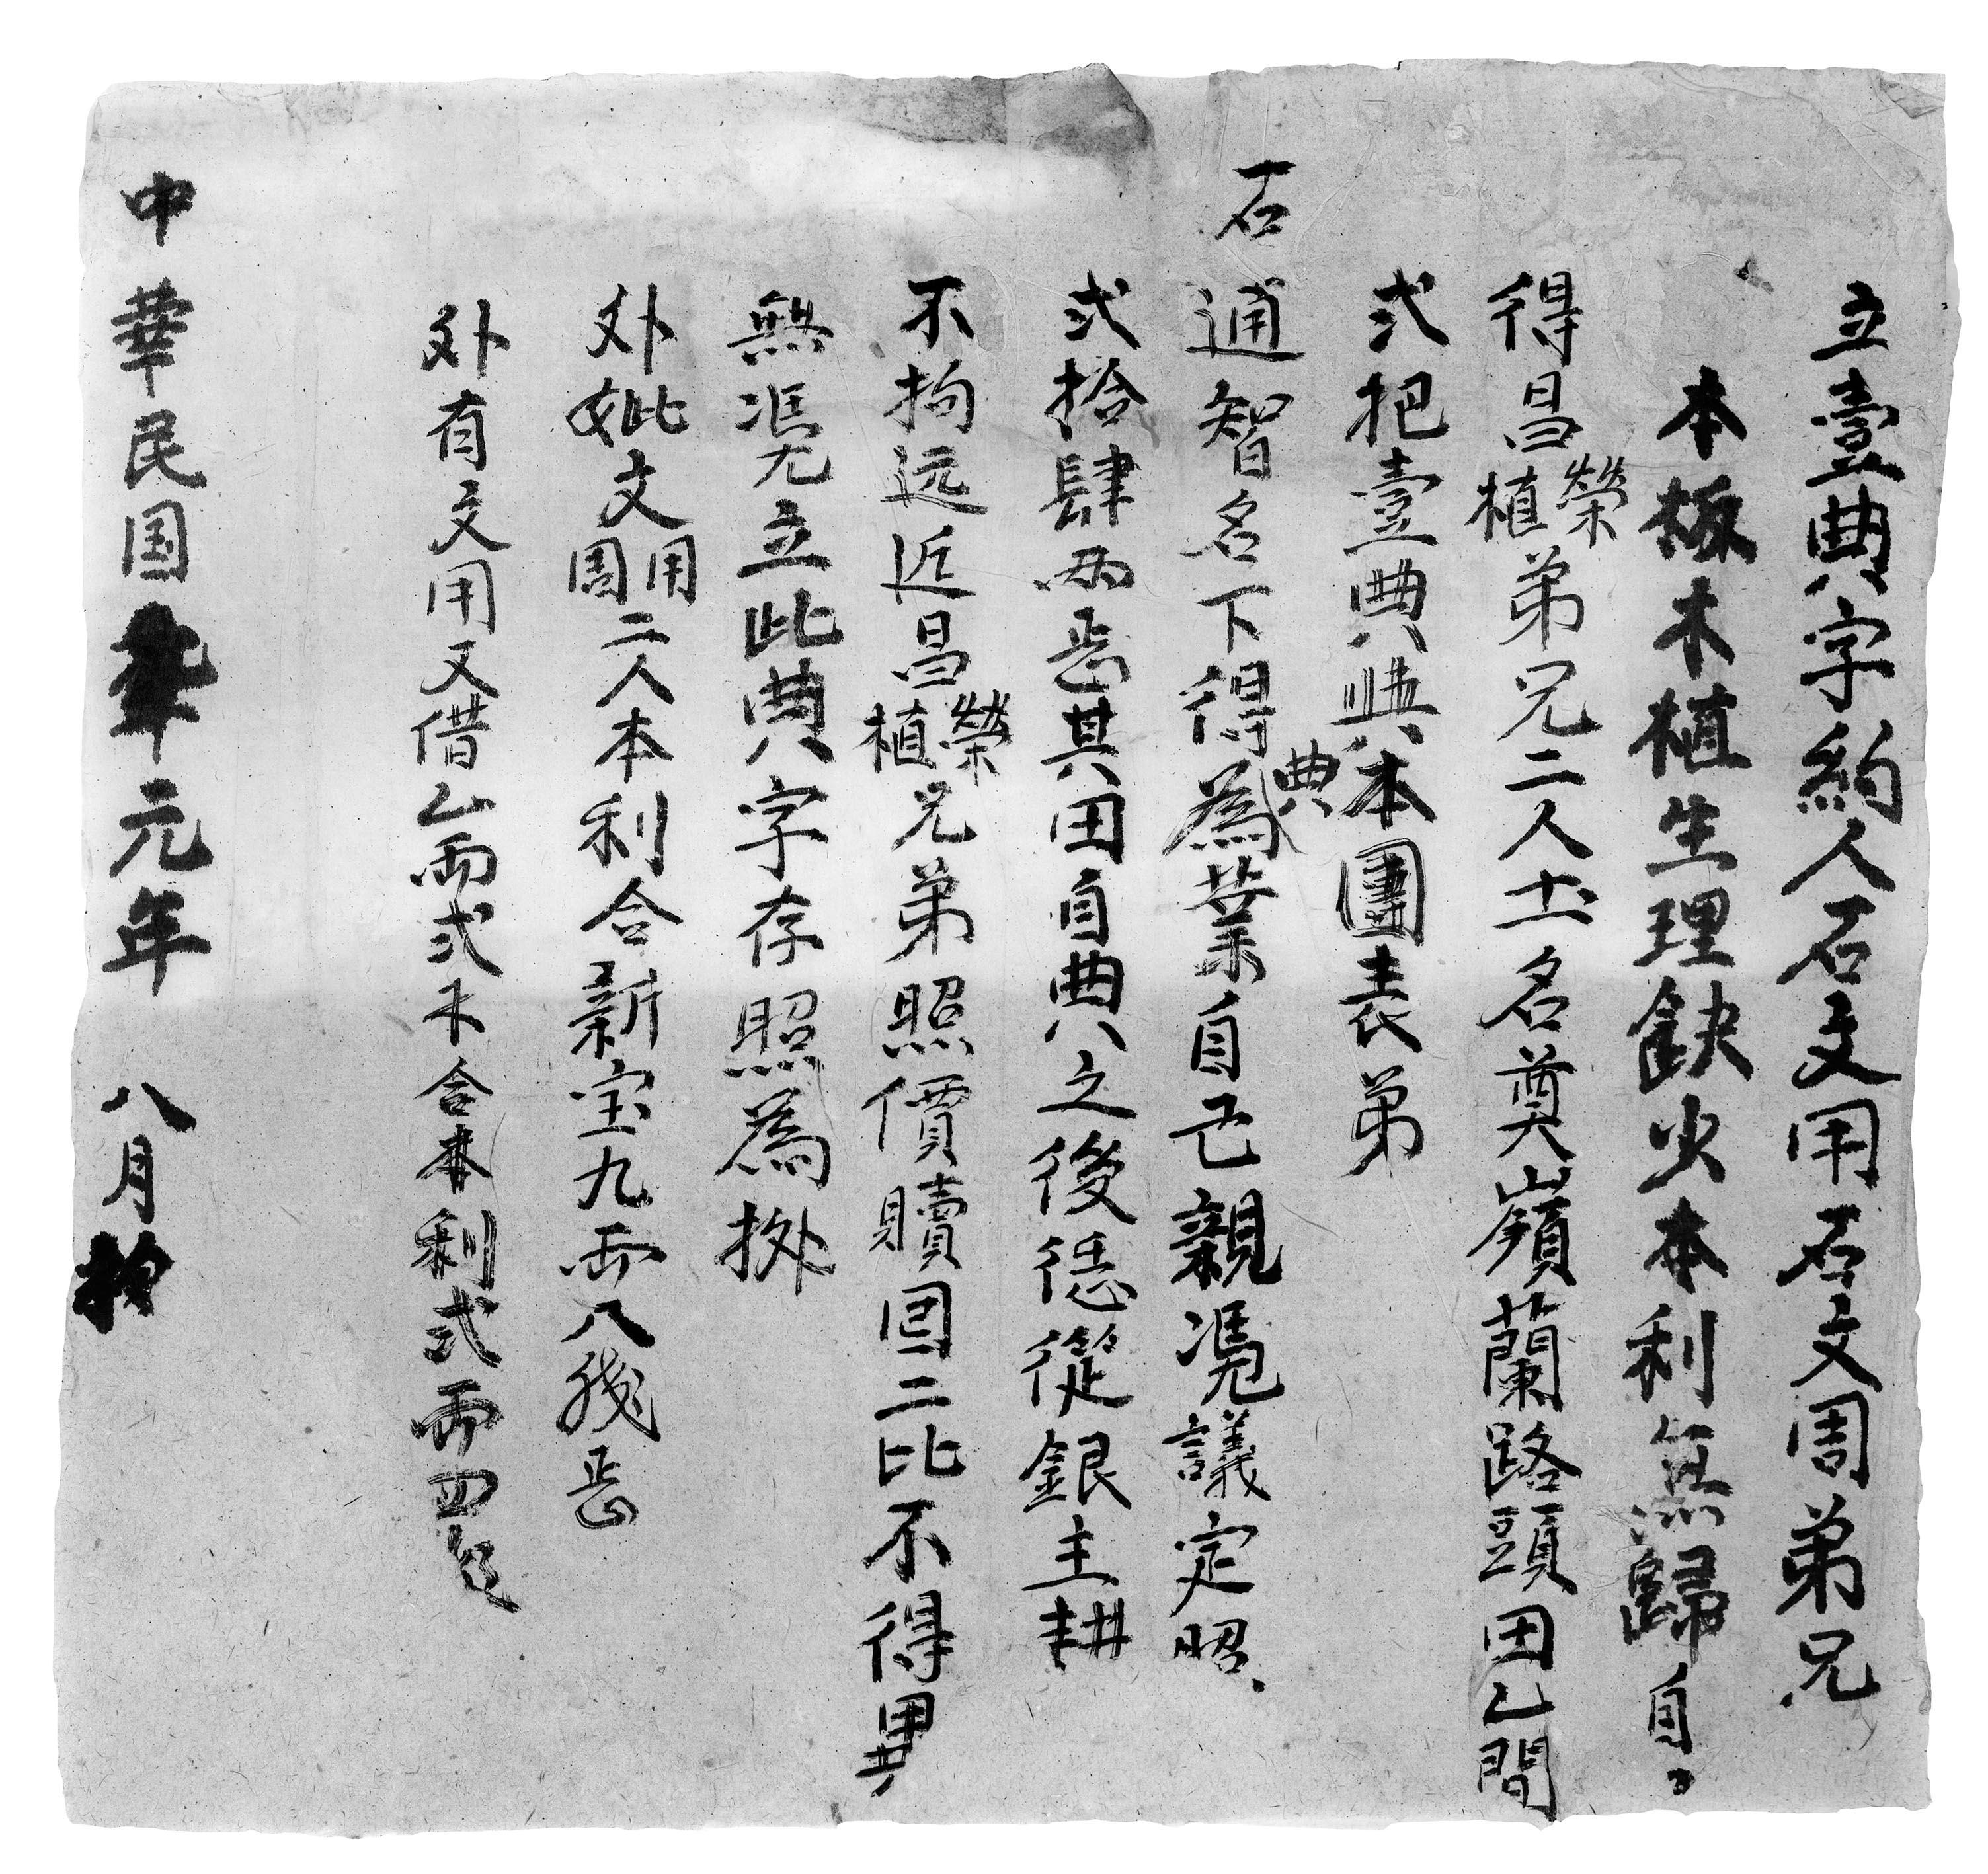 立壹典字約人石文用石文周弟兄
本板木植生理缺少本利無歸自。
得昌榮植弟兄二人土名奠嶺蘭路頭田乙間
弍把壹典與本團表弟
石通智名下得典為業自己親凴議定昭、
弍拾肆两㱏其田自典之後㥯從銀主耕
不拘远近昌榮植兄弟照價贖回二比不得異
無凴立此典字存照為㨿
外妣文用周二人本利合新宝九両八㦮㱏
外有文用又借乙両弍木合本利弍両四
中華民国元年 八月